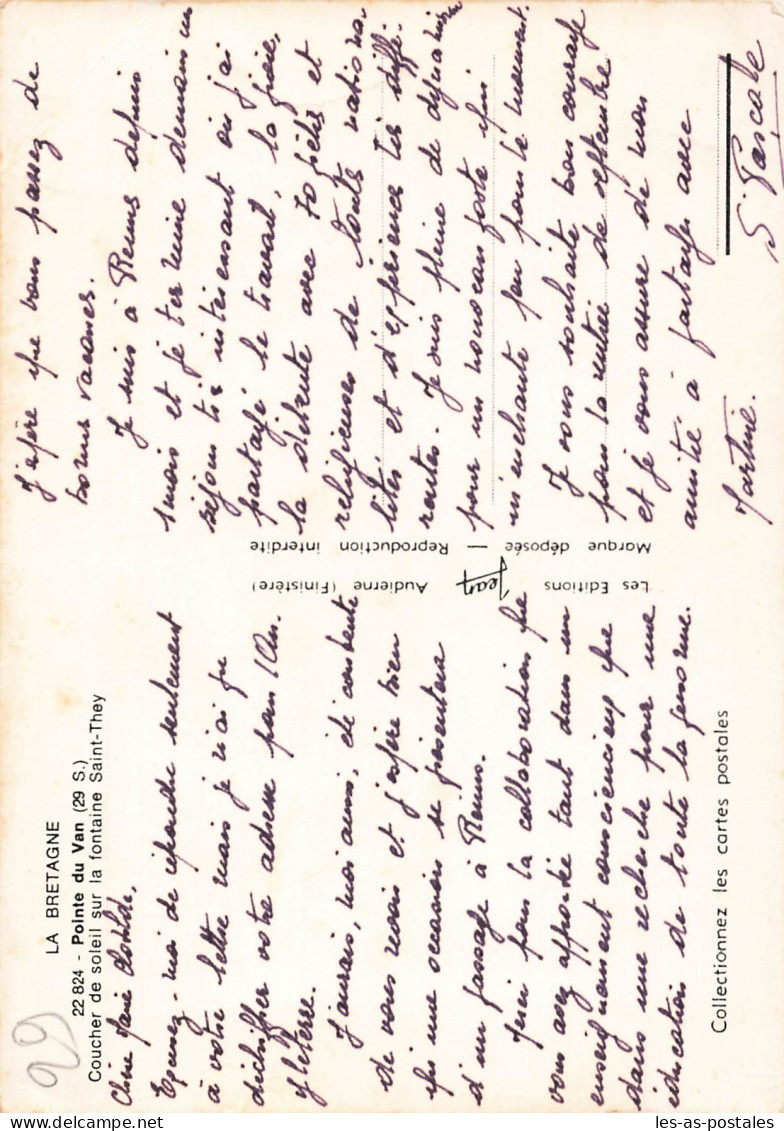 29
LA BRETAGNE
22 824 - Pointe du Van (29 S.)
Coucher de soleil sur la fontaine Saint-They
Chère Marie Clotilde,
Excusez-moi de répondre seulement
à votre lettre mais je n'ai pu
déchiffrer votre adresse pour l'An.
gleterre.
J'aurais, moi aussi, été contente
de vous revoir et j'espère bien
qu'une occasion se présentera
d'un passage à Reims.
Merci pour la collaboration que
vous avez apportée tant dans un
enseignement consciencieux que
dans une recherche pour une
éducation de toute la personne.
Collectionnez les cartes postales
Les Editions Jean Audierne (Finistère)
Marque déposée — Reproduction interdite
J'espère que vous passez de
bonnes vacances.
Je suis à Reims depuis
1 mois et je termine demain un
séjour très intéressant où j'ai
partagé le travail, la prière,
la détente avec 70 frères et
religieuses de toutes nationa-
lités et d'expériences très diffé-
rentes. Je suis pleine de dynamisme
pour un nouveau poste qui
m'enchante peu pour le moment.
Je vous souhaite bon courage
pour la rentrée de septembre
et je vous assure de mon
amitié à partager avec
Martine. S. Pascale
les-as-postales